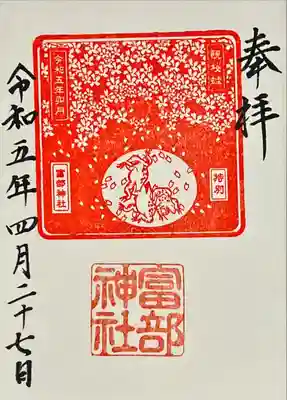 奉拝
特別
令和五年卯月
富部神社
富部
神社
令和五年四月二十七日